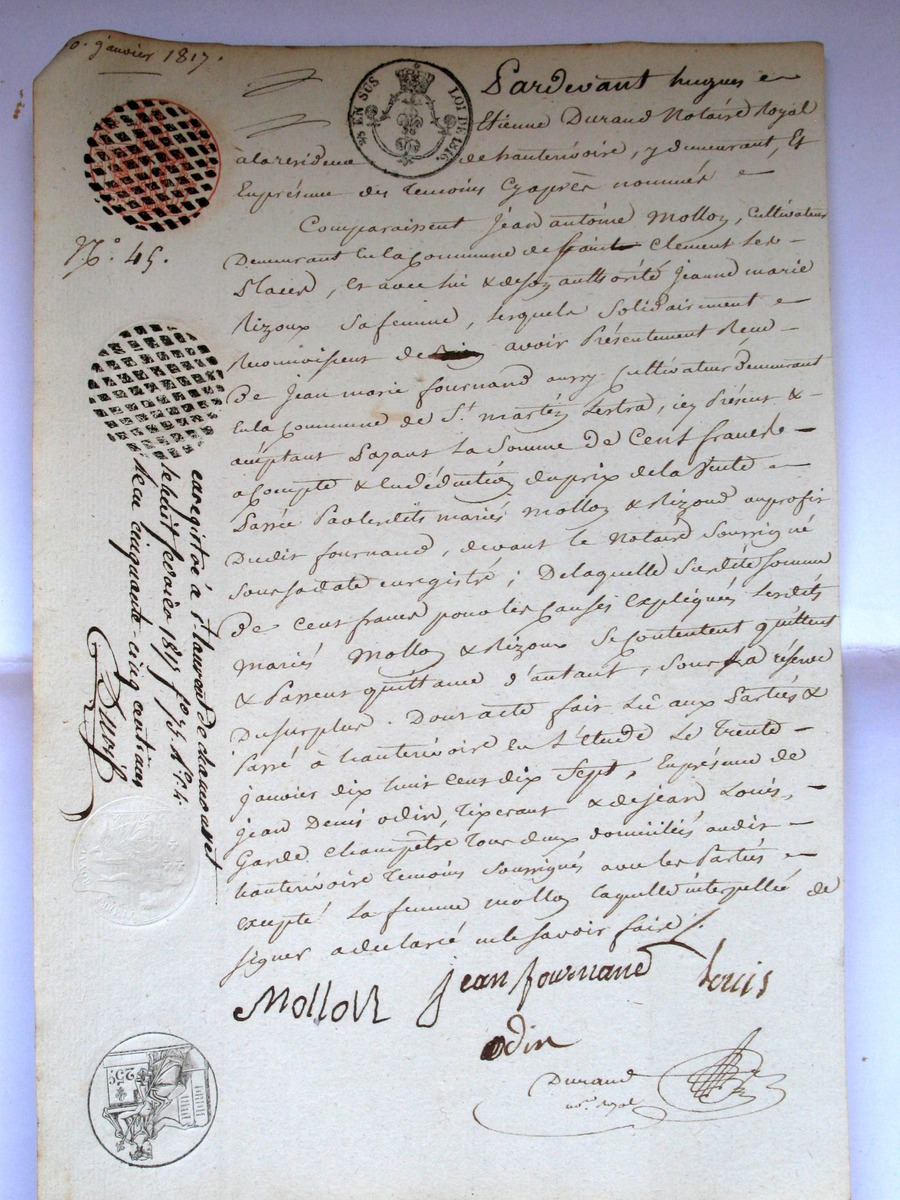 30. janvier 1817.
EN SUS
LOI DE 1816.
Pardevant hugues
Etienne Durand Notaire Royal
à la residence de hauterivoire, y demeurant, Et
En présence des temoins Cy après nommés
N.° 45.
Comparaissent Jean antoine Mollon, Cultivateur
Demeurant En la Commune de saint Clement Les
Places, Et avec lui & de son authorité Jeanne marie
Rizoux sa femme, lesquels Solidairement
Reconnoissent de avoir Présentement Reçu
De Jean marie fournand Cultivateur Demeurant
En la Commune de St. martin Lestra, icy Présent &
acceptant Payant La Somme de Cent francs
acompte & En déduction du prix de la Vente
Passée Par lesdits mariés Mollon & Rizoud au profit
Dudit fournand, devant le Notaire Soussigné
Sous sa date enregistré; De laquelle Susdite Somme
De Cent francs pour les Causes Expliquées lesdits
mariés Mollon & Rizoux Se Contentent quittent
& Passent quittance d'autant, Sous La réserve
Du surplus. Dont acte fait Lû aux Parties &
Passé à hauterivoire En L'Etude Le trente
janvier dix huit Cent dix Sept, En présence de
jean Denis odin, tixerant & de jean Louis,
Garde Champêtre tous deux domiciliés audit
hauterivoire temoins Soussignés avec les Parties
Excepté La femme mollon laquelle interpellée de
signer a declaré ne le savoir faire /.
enregistré à St. laurent de chamousset
le huit fevrier 1817 f.°
Reçu cinquante-cinq centimes
Mollon jean fournand Louis
odin
Durand
not. royal
25c